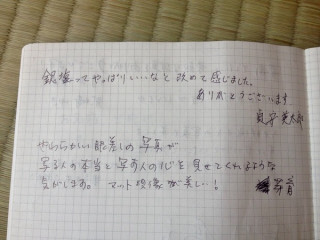 銀塩ってやっぱりいいなと改めて感じました。
ありがとうございます
英太郎
やわらかい眼差しの写真が
写る人の本当と写す人の心を見せてくれるような
気がします。マット印像が美しい!